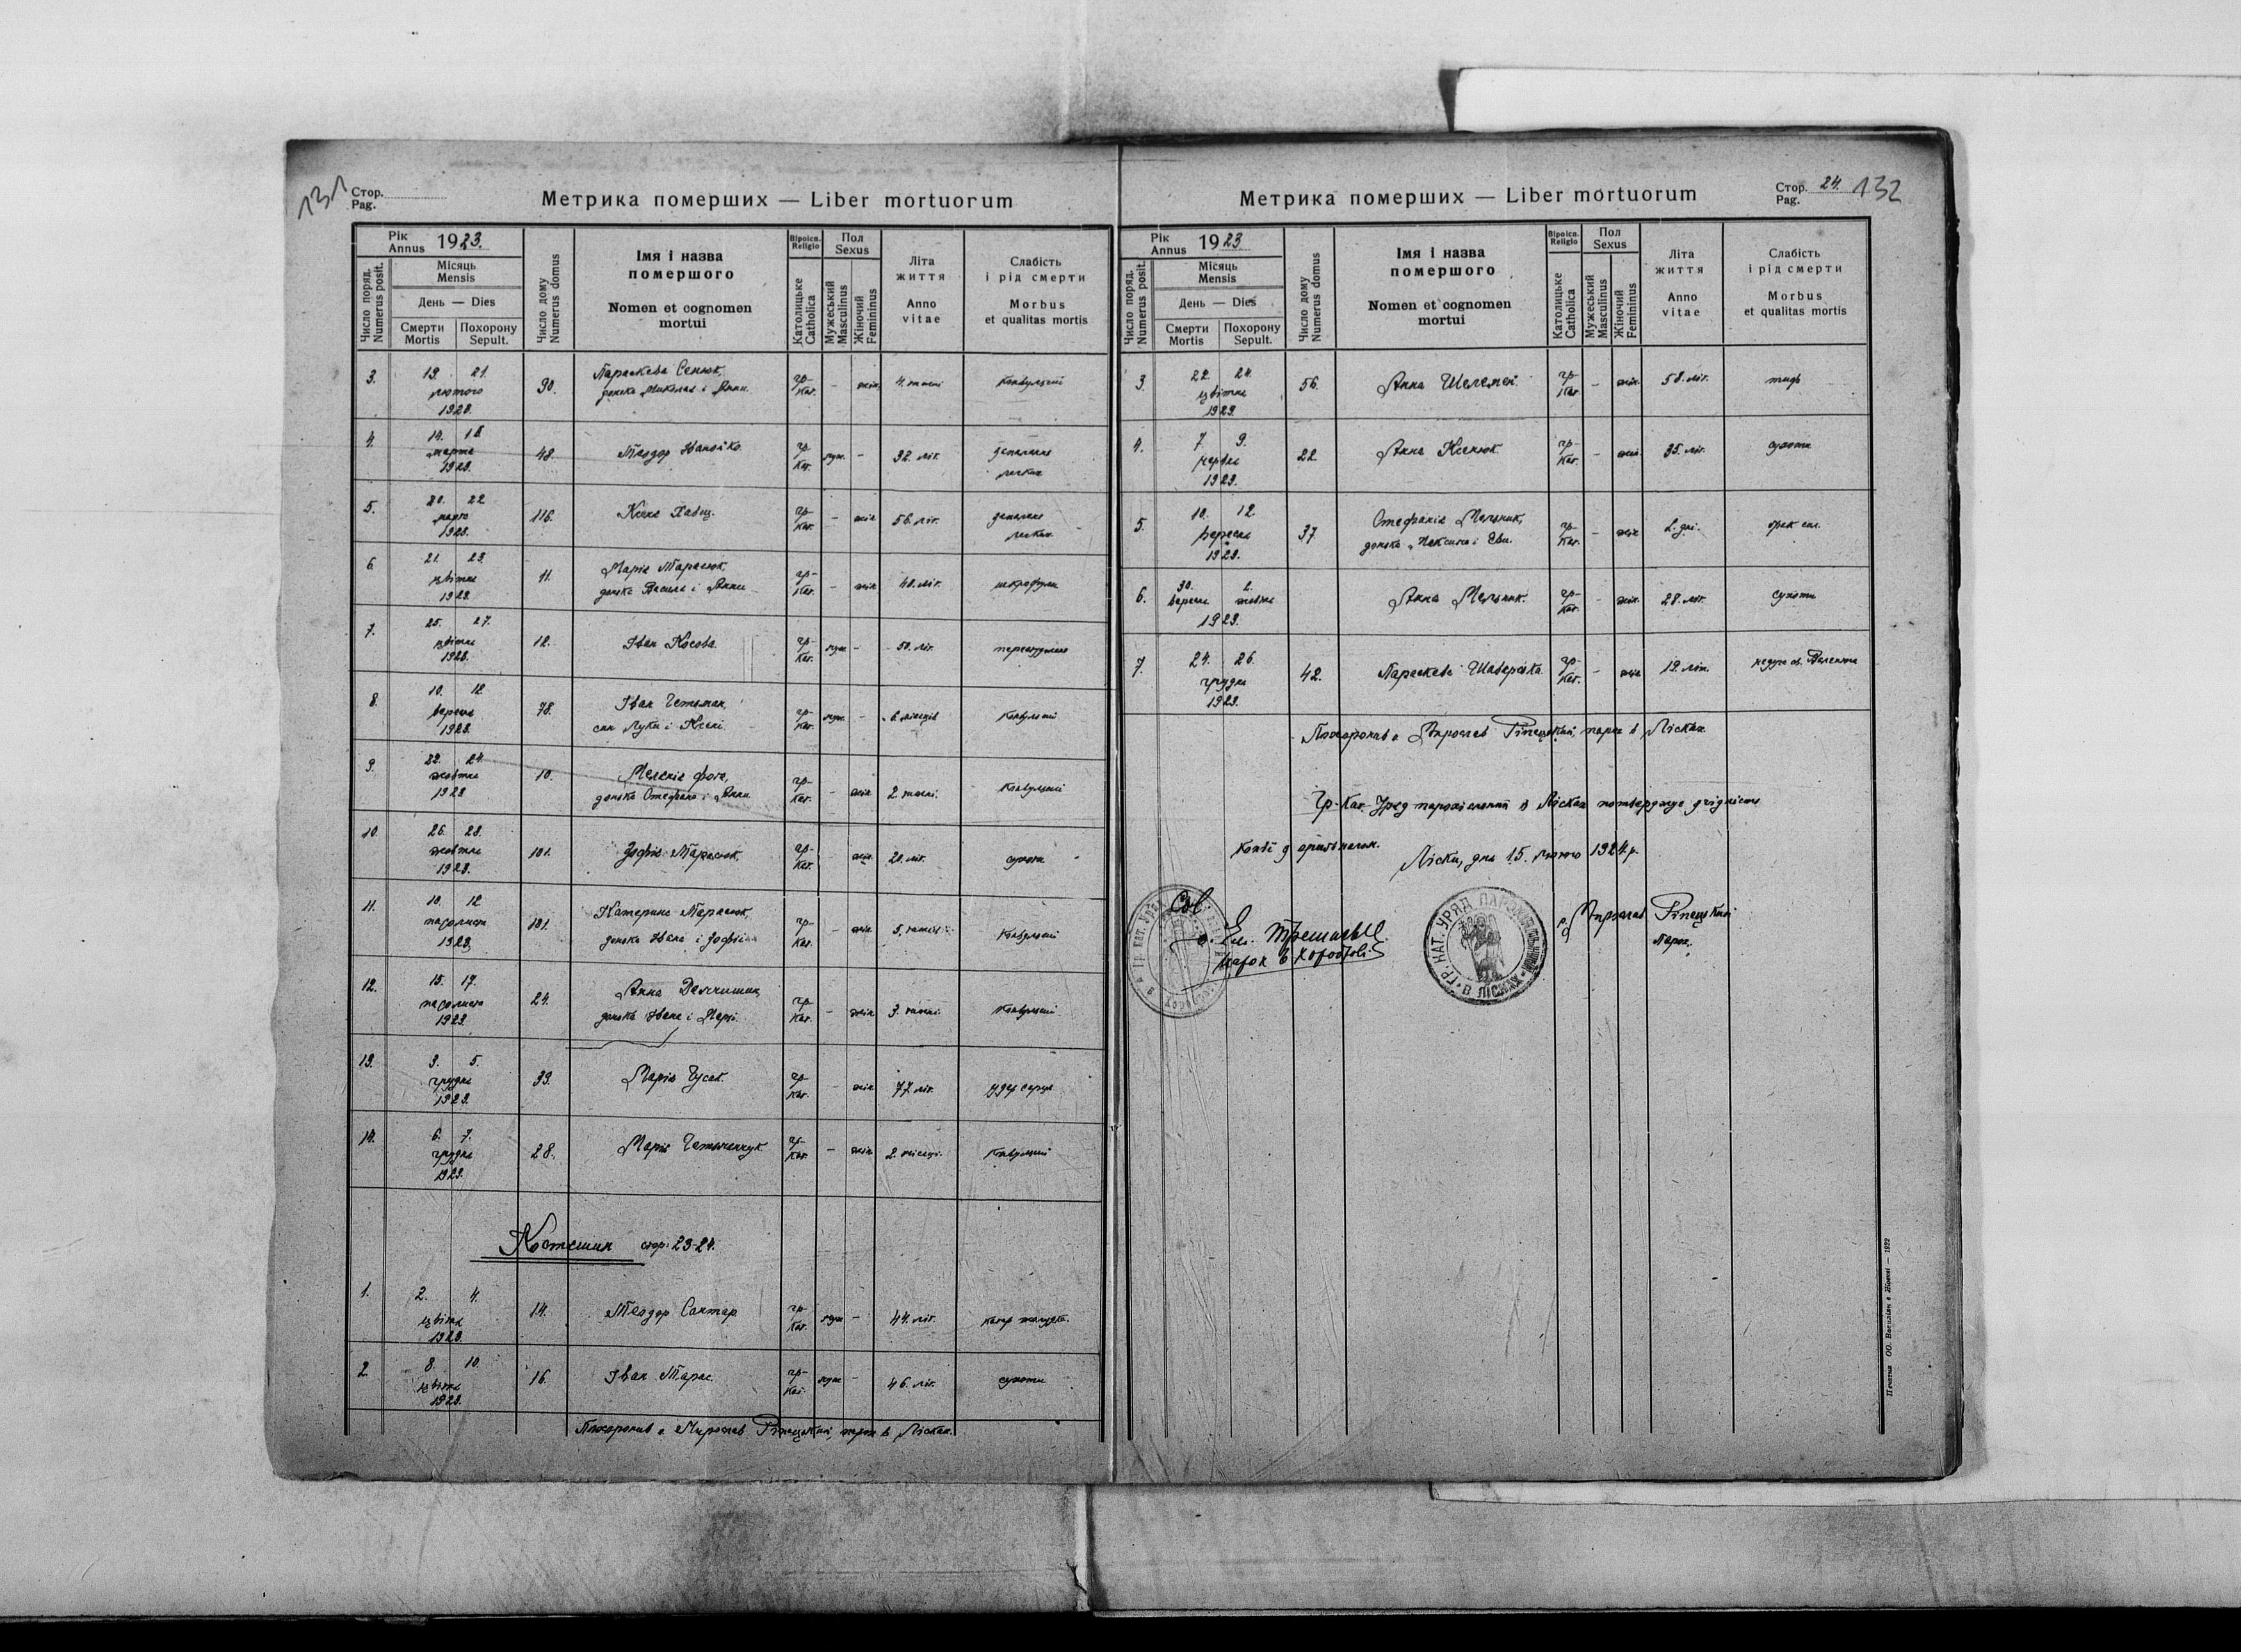 131
Стор.
Pag.
Метрика померших — Liber mortuorum
Рік
Annus 1923.
Число поряд.
Numerus posit.
Місяць
Mensis
День — Dies
Смерти
Mortis
Похорону
Sepult.
Число дому
Numerus domus
Імя і назва
помершого
Nomen et cognomen
mortui
Віроісп.
Religio
Католицьке
Catholica
Пол
Sexus
Мужеський
Masculinus
Жіночий
Femininus
Літа
життя
Anno
vitae
Слабість
і рід смерти
Morbus
et qualitas mortis
3. 19. 21. лютого 1923. 90. Параскева Сенюк, гр-кат. – жін. 4. тижні конвульсії
донька Миколая і Анни.
4. 14. 18. марта 1923. 48. Теодор Іванійко гр-кат. муж. – 32. літ. запалення легких
5. 20. 22 марта 1923. 116. гр-кат. – жін. 56. літ. запалення легких
6. 21. 23. цвітня 1923. 11. Марія Тарасюк, гр-кат. – жін. 40. літ. шкрофули
донька Василя і Анни
7. 25. 27. цвітня 1923. 12. Іван Косова гр-кат. муж. – 50. літ.
8. 10. 12. вересня 1923. 78. Іван Гетьман, гр-кат. муж. – 6. місяців конвульсії
син Луки і Ксені
9. 22. 24. жовтня 1923 10. гр-кат. – жін. 2 тижні. конвульсії
донька Стефана і Анни
10. 26. 28. жовтня 1923. 101. Зофія Тарасюк, гр-кат. – жін. 20. літ. сухоти
11. 10. 12 падолиста 1923. 101. Катерина Тарасюк, гр-кат. – жін. 3. тижні конвульсії
донька Івана і Зофії
12. 15. 17. падолиста 1923. 24. Анна гр-кат. – жін. 3. тижні. конвульсії
донька Івана і Марії.
13. 3. 5. грудня 1923. 39. Марія Гусак. гр-кат. – жін 77. літ. удар серця
14. 6. 7. грудня 1923. 28. Марія гр-кат. – жін. 2. місяці. конвульсії
Костешин стор: 23-24.
1. 2. 4. цвітня 1923. 14. Теодор Сантар гр-кат. муж – 44. літ. катар жолудка.
2 8. 10. цвітня 1923. 16. Іван Тарас. гр-кат. муж – 46. літ. сухоти
Похоронив о. Мирослав Ріпецький, парох в Лісках.
Метрика померших — Liber mortuorum
Стор.
Pag. 24. 132
Рік
Annus 1923
Число поряд.
Numerus posit.
Місяць
Mensis
День — Dies
Смерти
Mortis
Похорону
Sepult.
Число дому
Numerus domus
Імя і назва
помершого
Nomen et cognomen
mortui
Віроісп.
Religio
Католицьке
Catholica
Пол
Sexus
Мужеський
Masculinus
Жіночий
Femininus
Літа
життя
Anno
vitae
Слабість
і рід смерти
Morbus
et qualitas mortis
3. 22. 24. цвітня 1923. 56. Анна Шелемей гр-кат – жін. 58. літ. тиф
4. 7. 9. червня 1923. 22 Анна Ксенюк гр-кат. – жін. 35. літ. сухоти
5. 10. 12. вересня 1923. 37 Стефанія Мельник, гр-кат. – жін 2. дні. брак сил.
донька Максима і Еви.
6. 30. вересня 2. жовтня 1923. Анна Мельник. гр-кат. – жін. 28. літ. сухоти
7. 24. 26. грудня 1923. 42. Параскева гр-кат. – жін 19. літ. недуга св. Валентія
Похоронив о. Мирослав Ріпецький, парох в Лісках.
Гр-Кат. Уряд парохіяльний в Лісках потверджує згідність
копії з оригіналом.
Ліски, дня 15. лютого 1924. р.
о. Мирослав Ріпецький
парох.
ГР. КАТ. УРЯД ПАРОХІЯЛЬНИЙ В ЛІСКАХ
парох в
Печатня ОО. Василіян в Жовкві — 1922